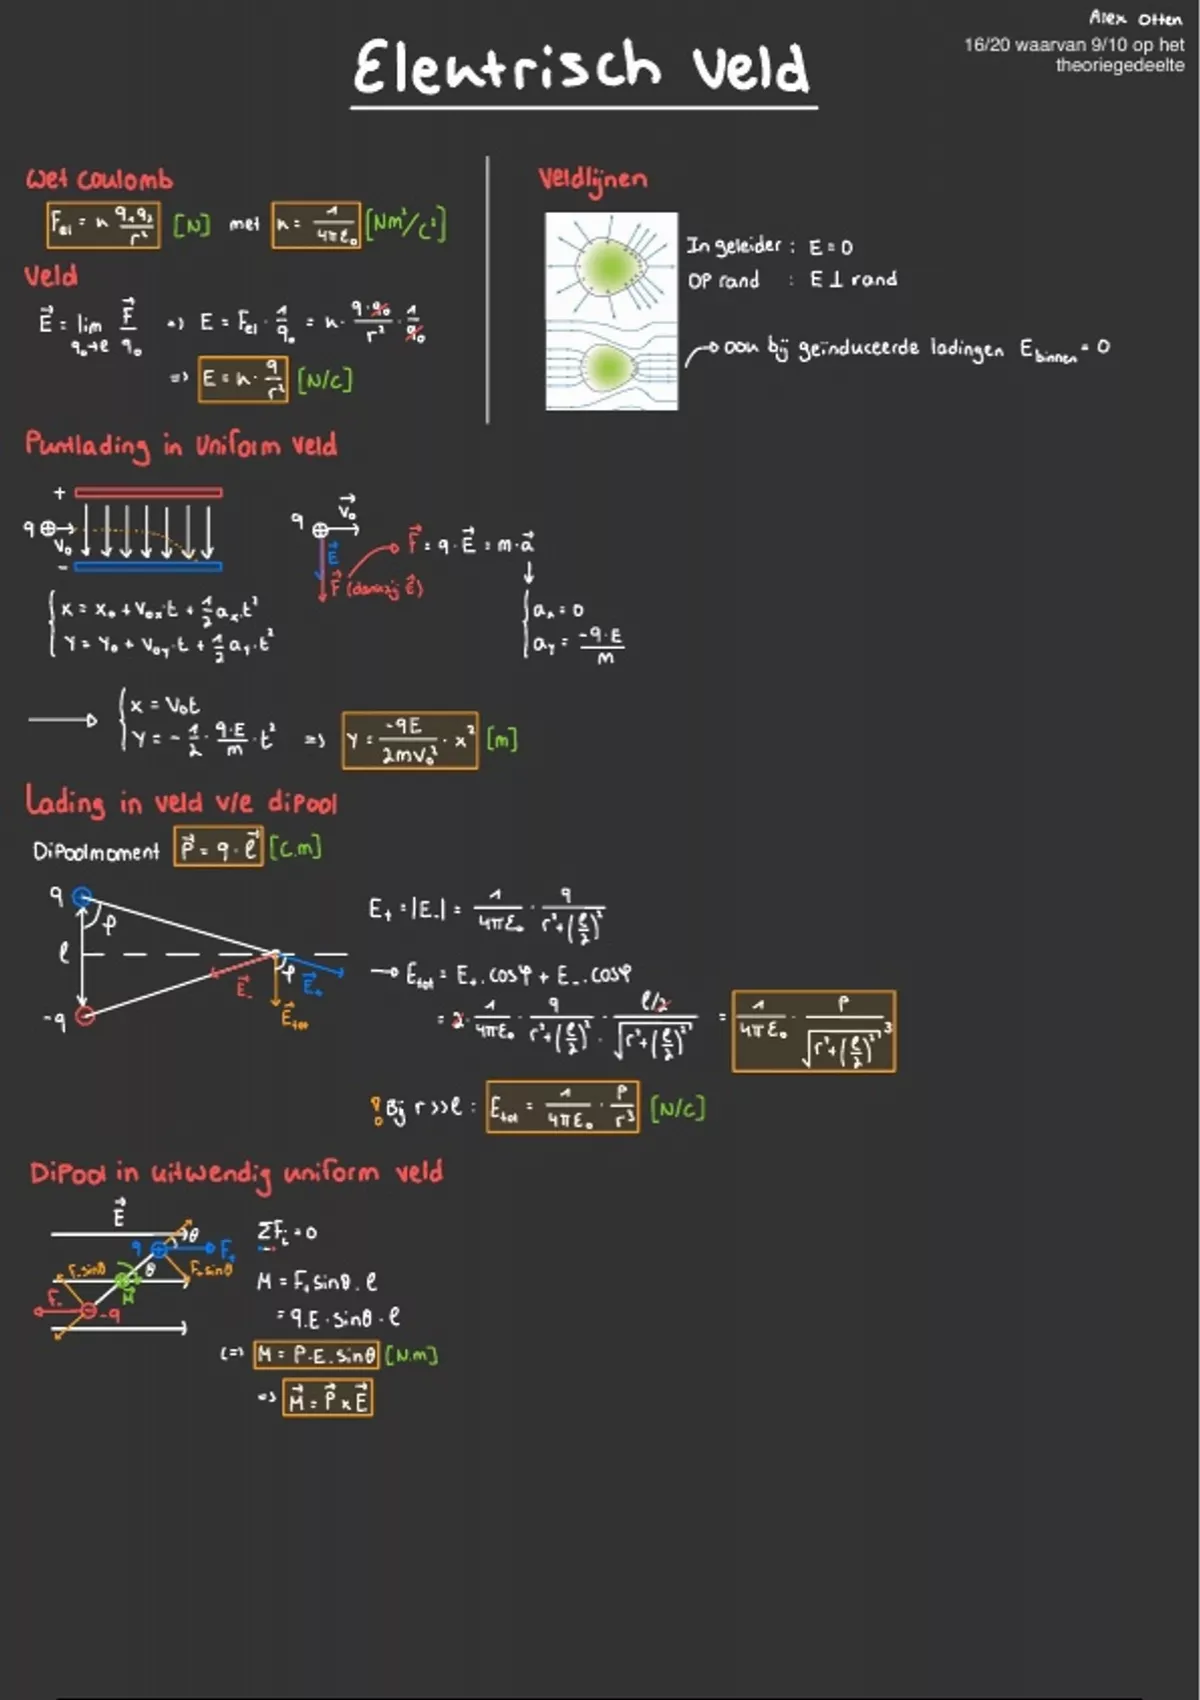 Alex Otten
16/20 waarvan 9/10 op het
theoriegedeelte
Elektrisch Veld
Wet Coulomb
F_el = k q₁q₂/r² [N] met k = 1/4πε₀ [Nm²/C²]
Veld
E⃗ = lim q₀→e F⃗/q₀ => E = F_el · 1/q₀ = k · q·q₀/r² · 1/q₀
=> E = k · q/r² [N/C]
Veldlijnen
In geleider : E = 0
Op rand : E ⊥ rand
→ ook bij geïnduceerde ladingen E_binnen = 0
Puntlading in Uniform Veld
+
q V₀
-
q V⃗₀
E⃗
F⃗ (dankzij E⃗)
F⃗ = q · E⃗ = m · a⃗
x = x₀ + V₀ₓ·t + 1/2 aₓ·t²
y = y₀ + V₀y·t + 1/2 ay·t²
aₓ = 0
ay = -q·E/m
x = V₀t
y = - 1/2 · q·E/m · t² => y = -qE/2mV₀² · x² [m]
Lading in veld v/e dipool
Dipoolmoment P⃗ = q · ℓ⃗ [C.m]
q φ
ℓ
-q
E⃗₋ φ E⃗₊
E⃗tot
E₊ = |E₋| = 1/4πε₀ · q/r²+(ℓ/2)²
→ E_tot = E₊·cosφ + E₋·cosφ
= 2 · 1/4πε₀ · q/r²+(ℓ/2)² · ℓ/2/√r²+(ℓ/2)² = 1/4πε₀ · P/√r²+(ℓ/2)²³
! Bij r >> ℓ : E_tot = 1/4πε₀ · P/r³ [N/C]
Dipool in uitwendig uniform veld
E⃗
θ
q F₊
F₋sinθ θ F₊sinθ
M⃗
F₋ -q
ΣFᵢ = 0
M = F₊sinθ · ℓ
= q.E · sinθ · ℓ
<=> M = P·E·sinθ [N.m]
=> M⃗ = P⃗ x E⃗